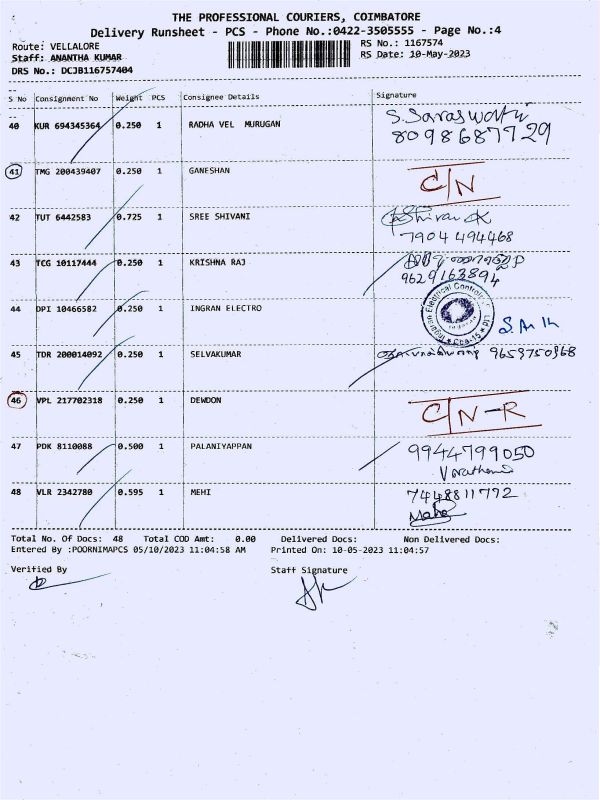 THE PROFESSIONAL COURIERS, COIMBATORE
Delivery Runsheet - PCS - Phone No.:0422-3505555 - Page No.:4
Route: VELLALORE
RS No.: 1167574
Staff: ANANTHA KUMAR
RS Date: 10-May-2023
DRS No.: DCJB116757404
S No Consignment No Weight PCS Consignee Details Signature
40 KUR 694345364 0.250 1 RADHA VEL MURUGAN S. Saraswathi
8098687729
41 TMG 200439407 0.250 1 GANESHAN C/N
42 TUT 6442583 0.725 1 SREE SHIVANI
7904494468
43 TCG 10117444 0.250 1 KRISHNA RAJ
9629163894
44 DPI 10466582 0.250 1 INGRAN ELECTRO
45 TDR 200014092 0.250 1 SELVAKUMAR 9659750968
46 VPL 217702318 0.250 1 DEWDON C/N-R
47 PDK 8110088 0.500 1 PALANIYAPPAN 9944799050
48 VLR 2342780 0.595 1 MEHI 7448811772
Total No. Of Docs: 48 Total COD Amt: 0.00 Delivered Docs: Non Delivered Docs:
Entered By :POORNIMAPCS 05/10/2023 11:04:58 AM Printed On: 10-05-2023 11:04:57
Verified By Staff Signature